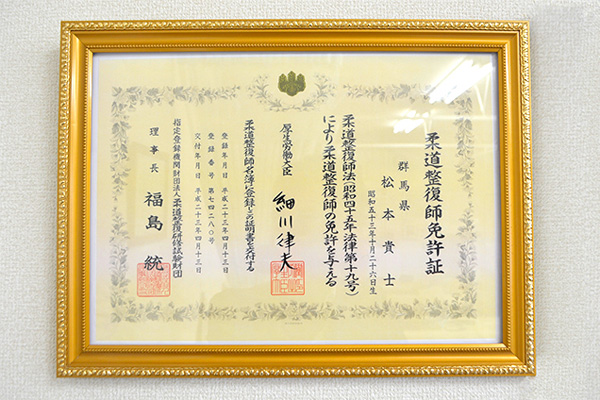 柔道整復師免許証
群馬県
松本貴士
昭和五十三年十月二十六日生
柔道整復師法(昭和四十五年法律第十九号)
により柔道整復師の免許を与える
厚生労働大臣 細川律夫
柔道整復師名簿に登録しこの証明書を交付する
登録年月日 平成二十三年四月十三日
登録番号 第七四二八〇号
交付年月日 平成二十三年四月十三日
指定登録機関財団法人柔道整復研修試験財団
理事長 福島統